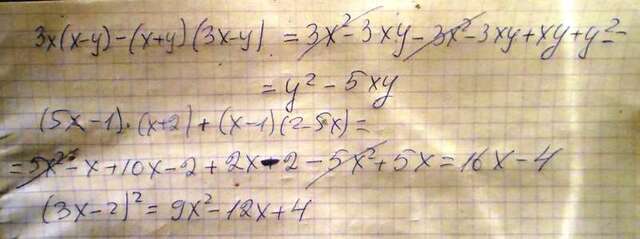 3x(x-y)-(x+y)(3x-y) = 3x²-3xy-3x²-3xy+xy+y²=
= y² - 5xy
(5x-1)·(x+2)+(x-1)(2-5x)=
= 5x²-x+10x-2+2x-2-5x²+5x=16x-4
(3x-2)²= 9x²-12x+4